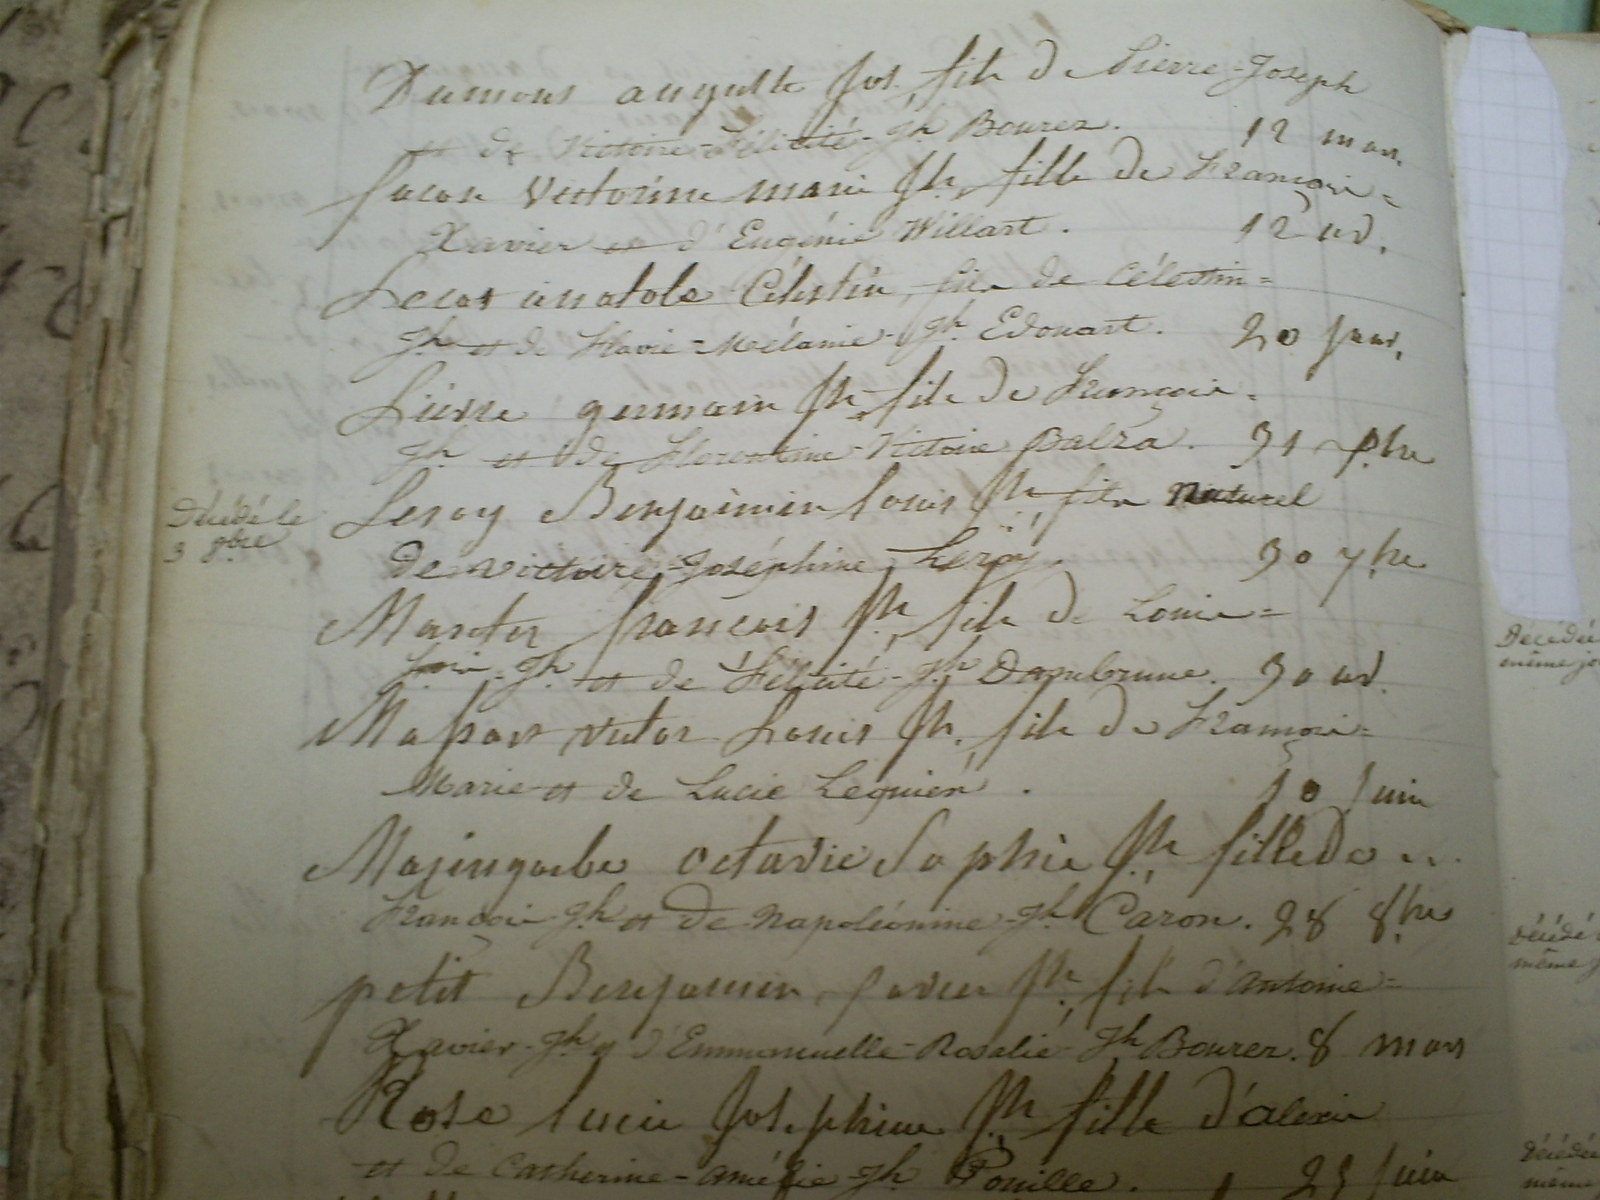 Dumont auguste Jos. fils de Pierre-Joseph
et de Victoire-Félicité-Jh Bourez. 12 mars.
Victorine marie Jh, fille de François=
Xavier et d'Eugénie Willart. 12 id.
Lecat anatole Célestin, fils de Célestin=
Jh et de Flavie=Mélanie-Jh. Edouart. 20 Janv.
Lievre germain Jh fils de François=
Jh et de Florentine-Victoire Balza. 31
Décédé le
3 9bre
Leroy Benjamin louis Jh, fils Naturel
de Victoire Joséphine Leroy. 30 7bre
françois Jh, fils de Louis=
Jh et de Félicité-Jh Dapubrune. 30 id.
Victor Louis Jh, fils de François=
Marie et de Lucie Lequien. 10 Juin
Mazingarbe octavie Sophie Jh, fille de
François-Jh et de Napoléonine-Jh Caron. 28 8bre
petit Benjamin Xavier Jh, fils d'Antoine=
Xavier-Jh & d'Emmanuelle-Rosalie-Jh Bourez. 8 mars
Rose lucie Josephine Jh, fille d'alexis
et de Catherine-amélie-Jh Pouille. 25 Juin
Décédée
même jo
Décédé
même j
Décédée
même